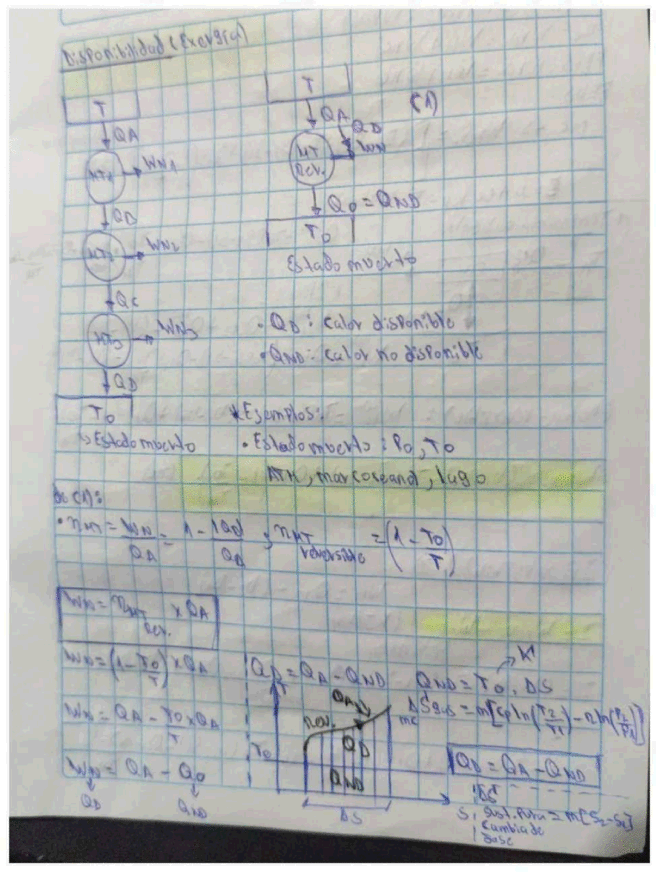 Disponibilidad (Exergia)
T
QA
MT1
WN1
QB
MT2
WN2
QC
MT3
WN3
QD
TO
↳ Estado muerto
T
(1)
QA
QD
MT
Rev.
WN
QO = QND
TO
Estado muerto
• QD: calor disponible
• QND: calor no disponible
* Ejemplos:
• Estado muerto: PO, TO
ATM, mar (oceano), lago
De (1):
• nMT = WN/QA = 1 - QO/QA ; nMT reversible = (1 - TO/T)
WN = nMT Rev. x QA
WN = (1 - TO/T) x QA
WN = QA - TO/T x QA
WN = QA - QO
QD
QND
QD = QA - QND
QND = TO . ΔS
T
QA
rev.
TO
QD
QND
ΔS
S
ΔSgas = m[Cp ln(T2/T1) - R ln(P2/P1)]
QD = QA - QND
ΔS
Sust. Pura = m[S2-S1]
Cambia de
fase